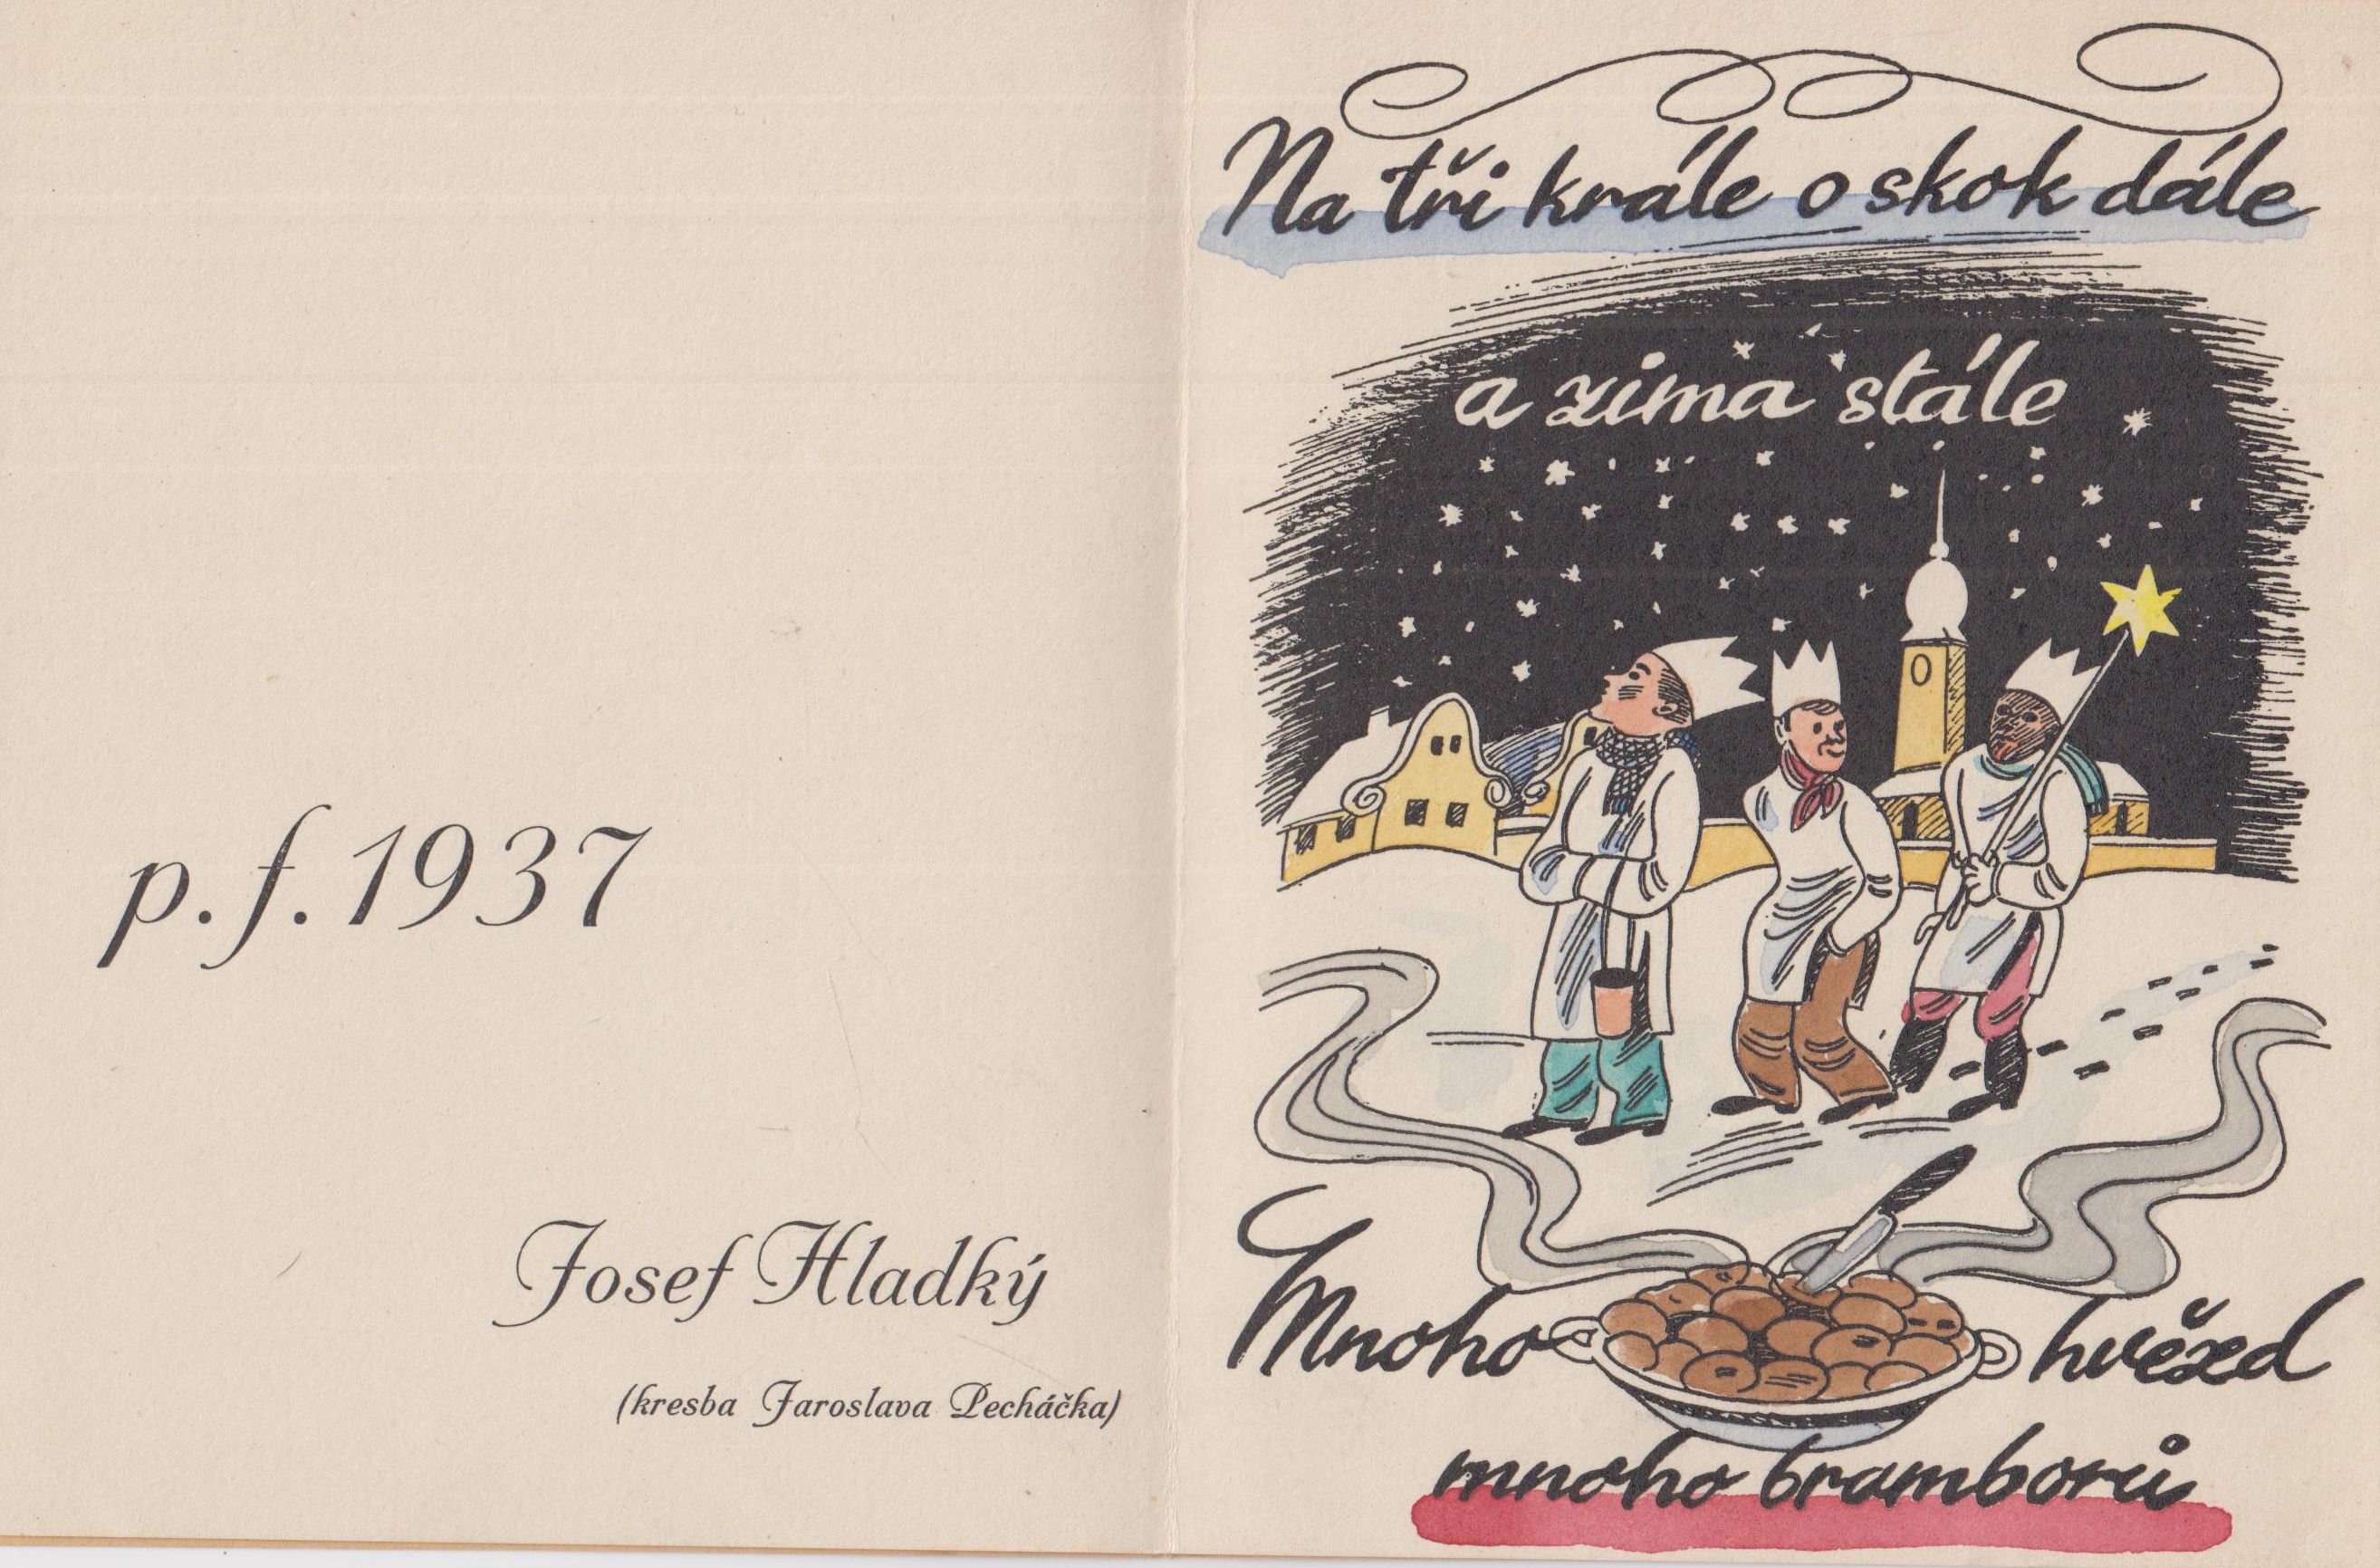 p. f. 1937
Josef Hladký
(kresba Jaroslava Pecháčka)
Na tři krále o skok dále
a zima stále
Mnoho hvězd
mnoho bramborů